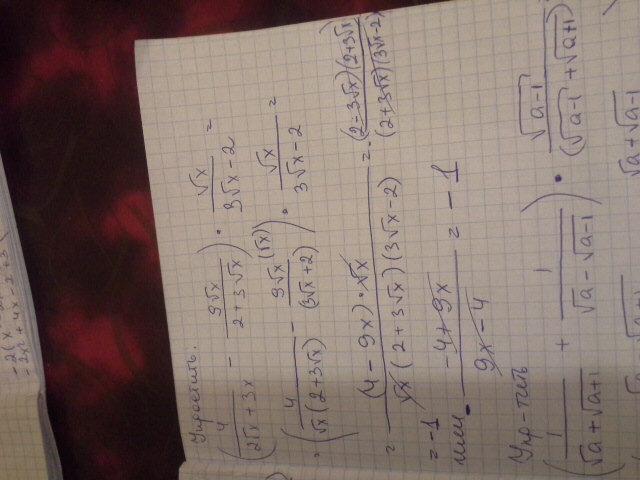 Упростить.
(4/(2√x + 3x) - 9√x/(2 + 3√x)) · √x/(3√x - 2) =
= (4/(√x(2+3√x)) - 9√x (√x)/(3√x+2)) · √x/(3√x - 2) =
= (4 - 9x) · √x/(√x(2+3√x)(3√x-2)) = (2-3√x)(2+3√x)/((2+3√x)(3√x-2))
= -1
или -4+9x/(9x-4) = -1
Упр-тить
(1/(√a+√a+1) + 1/(√a-√a-1)) · √a-1/((√a-1 + √a+1)
√a+√a-1